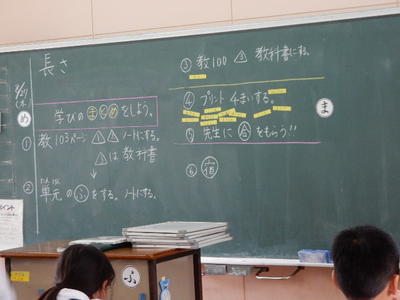 長さ
め
学びのまとめをしよう。
① 教103ページ ノートにする。
は教科書
↓
② 単元のふをする。ノートにする。
③ 教100 教科書にする。
④ プリント4まいする。
ま
⑤ 先生に合をもらう!!
⑥ 宿
ふ